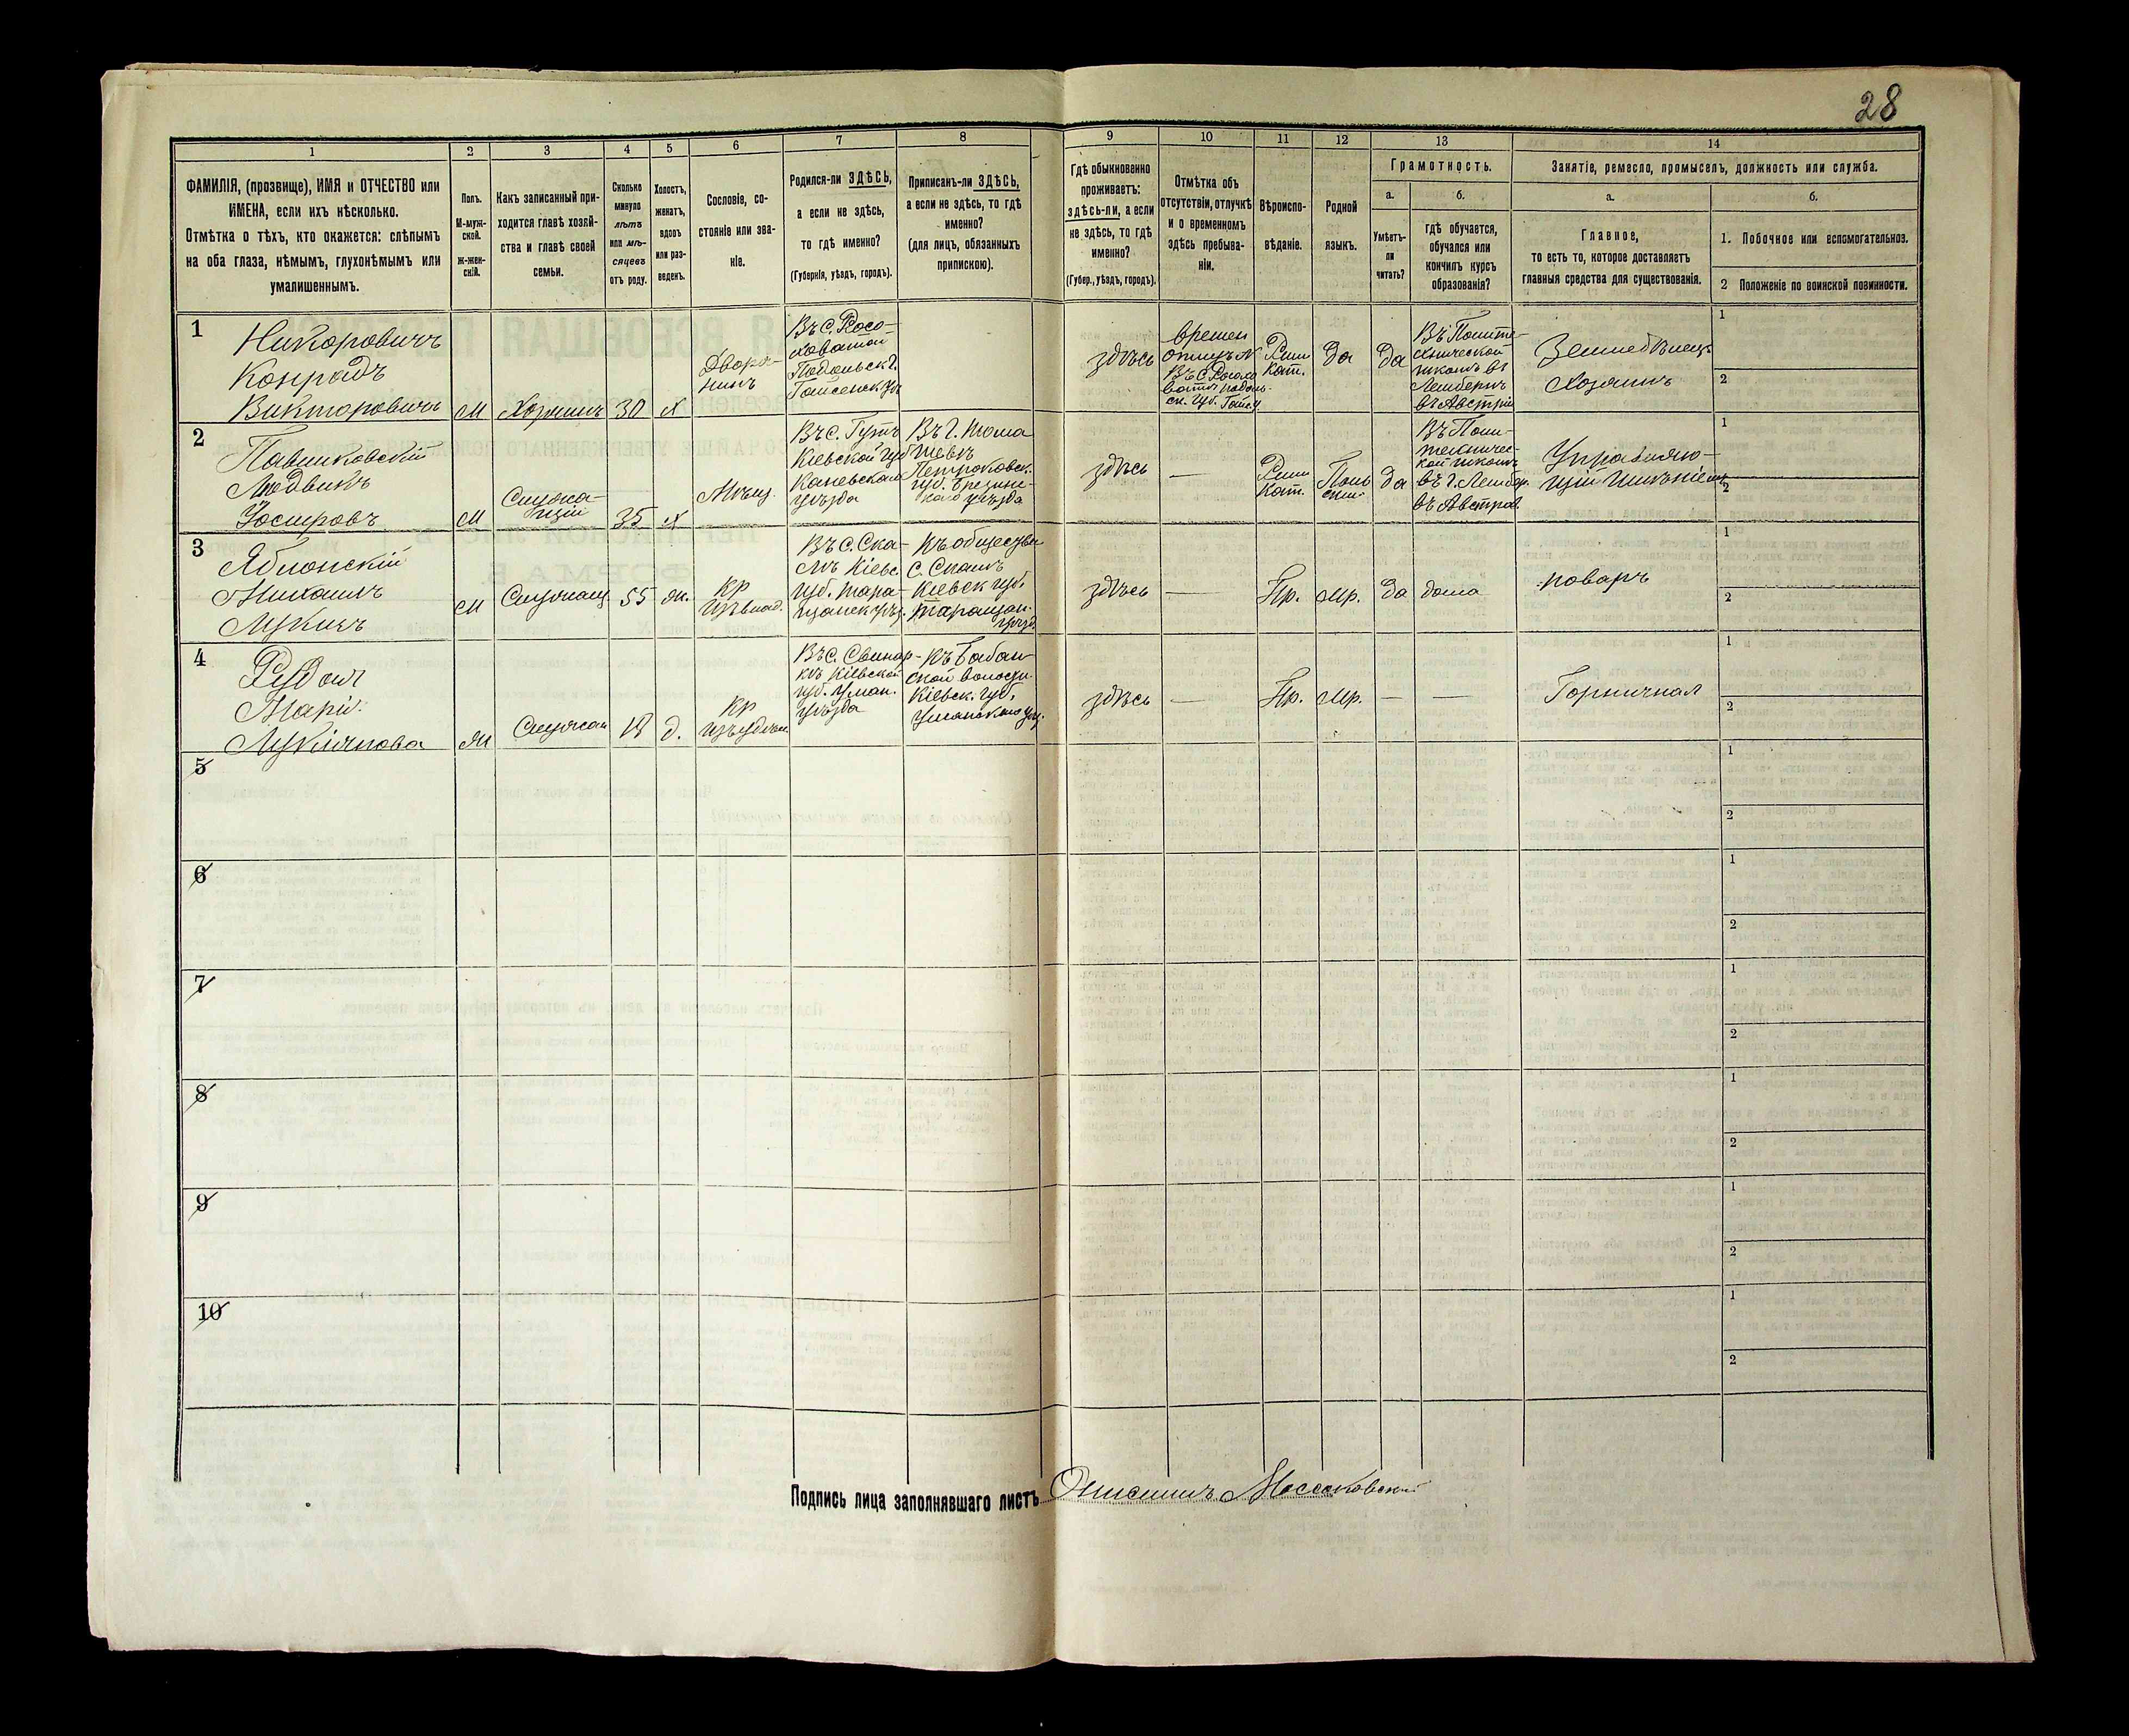 28
1
2
3
4
5
6
7
8
9
10
11
12
13
14
ФАМИЛІЯ, (прозвище), ИМЯ и ОТЧЕСТВО или
ИМЕНА, если ихъ нѣсколько.
Отмѣтка о тѣхъ, кто окажется: слѣпымъ
на оба глаза, нѣмымъ, глухонѣмымъ или
умалишеннымъ.
Полъ.
М-муж-
ской.
ж-жен-
скій.
Какъ записанный при-
ходится главѣ хозяй-
ства и главѣ своей
семьи.
Сколько
минуло
лѣтъ
или мѣ-
сяцевъ
отъ роду.
Холостъ,
женатъ,
вдовъ
или раз-
веденъ.
Сословіе, со-
стояніе или зва-
ніе.
Родился-ли ЗДѢСЬ,
а если не здѣсь,
то гдѣ именно?
(Губернія, уѣздъ, городъ).
Приписанъ-ли ЗДѢСЬ,
а если не здѣсь, то гдѣ
именно?
(для лицъ, обязанныхъ
припискою).
Гдѣ обыкновенно
проживаетъ:
здѣсь-ли, а если
не здѣсь, то гдѣ
именно?
(Губер., уѣздъ, городъ).
Отмѣтка объ
отсутствіи, отлучкѣ
и о временномъ
здѣсь пребыва-
ніи.
Вѣроиспо-
вѣданіе.
Родной
языкъ.
Грамотность.
а.
Умѣетъ-
ли
читать?
б.
гдѣ обучается,
обучался или
кончилъ курсъ
образованія?
Занятіе, ремесло, промыселъ, должность или служба.
а.
Главное,
то есть то, которое доставляетъ
главныя средства для существованія.
б.
1. Побочное или вспомогательное.
2 Положеніе по воинской повинности.
1
Конрадъ
Викторовичъ
м
Хозяинъ
30
х
Дворя-
нинъ
Въ С. Росо-
ховатой
Подольск. г.
здѣсь
времен
Рим
Кат.
да
да
Въ Полите-
хнической
школѣ въ
въ Австріи
Хозяинъ
1
2
2
Павликовскій
Людвикъ
м
Служа-
щій
35
х
Мѣщ.
Кіевской губ
Каневскаго
уѣзда
Въ г. Тома
шевѣ
Петроковск.
уѣзда
здѣсь
—
Рим
Кат.
Поль
да
Въ Поли-
техничес-
кой школѣ
Управляю-
щій имѣніемъ
1
2
3
Яблонскій
Михаилъ
м
Служащ
55
ж.
кр
Въ С. Ска-
лѣ Кіевс
губ. Тара-
щанск. уѣз.
Къ обществу
Кіевск губ.
Таращан.
уѣзд.
здѣсь
—
Пр.
Мр.
да
дома
поваръ
1
2
4
ж
18
д.
кр
кѣ Кіевской
губ. Уман.
уѣзда
Къ Бабан-
ской волости
Кіевск. губ.
здѣсь
—
Пр.
Мр.
—
—
Горничная
1
2
5
1
2
6
1
2
7
1
2
8
1
2
9
1
2
10
1
2
Подпись лица заполнявшаго листъ